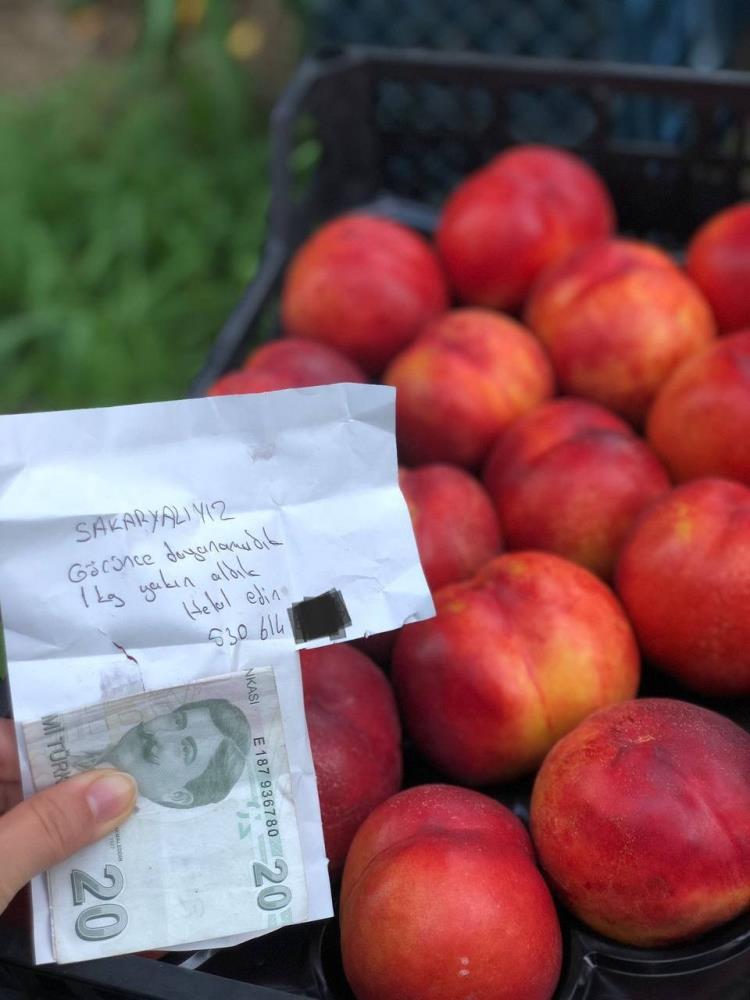 SAKARYALIYIZ
Görünce dayanamadık
1 kg yakın aldık
Helal edin
530 614
NKASI
Mİ TÜRK
E187 936780
20
20